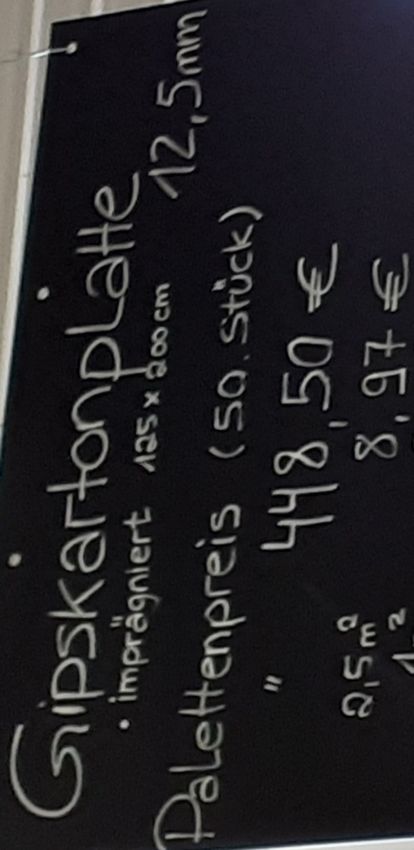 Gipskartonplatte
• imprägniert 125 x 200 cm 12,5mm
Palettenpreis (50. Stück)
" 448,50 €
2,5m² 8,97 €